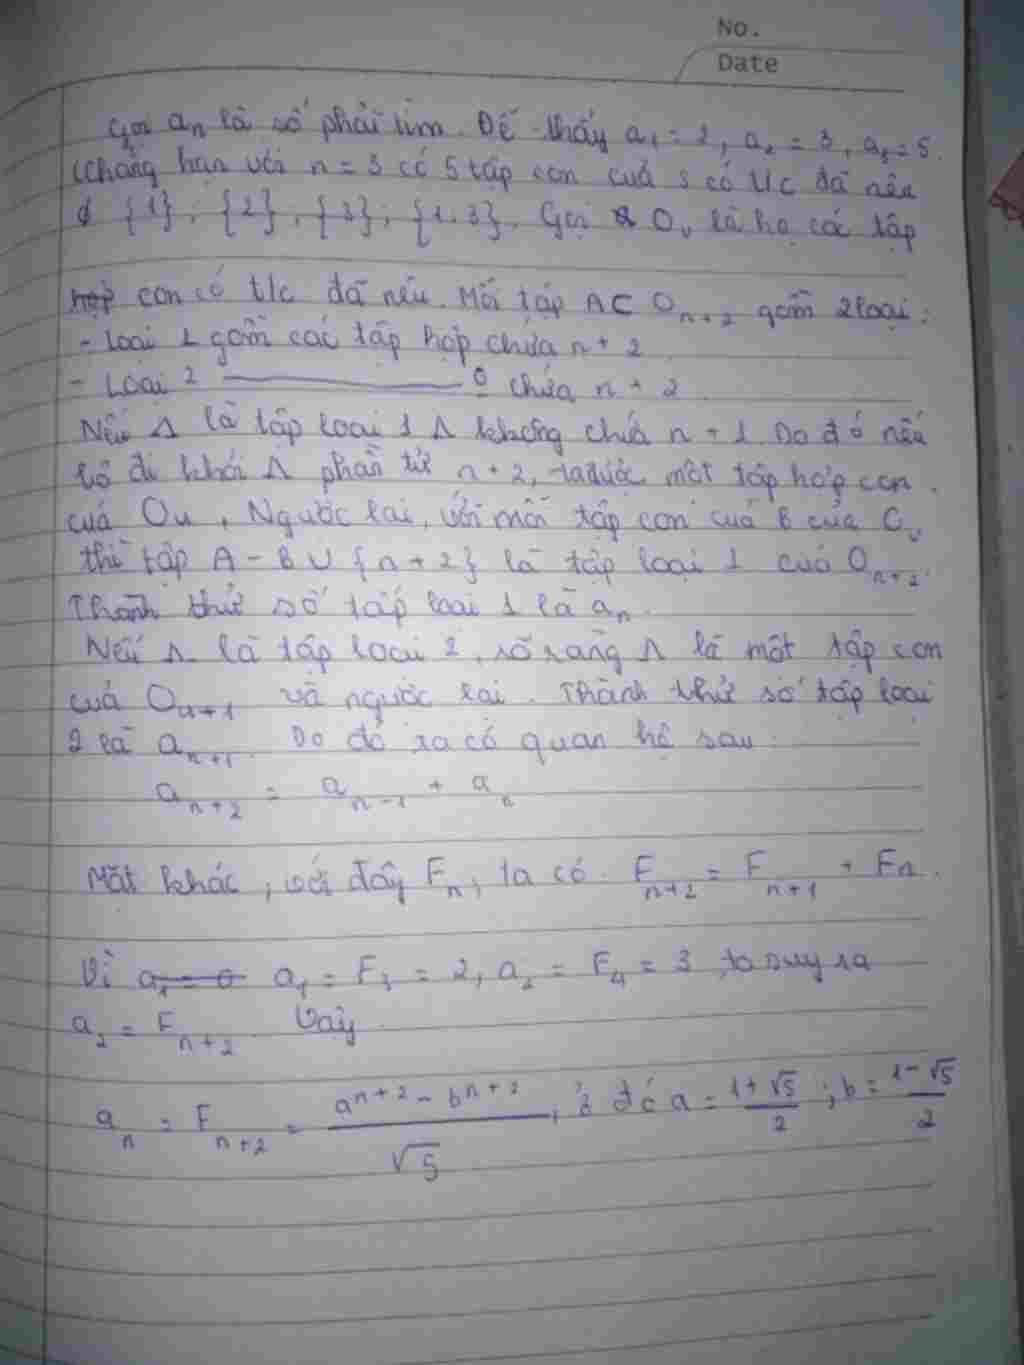 No.
Date
Gọi aₙ là số phải tìm. Dễ thấy a₁ = 2, a₂ = 3, a₃ = 5.
(Chẳng hạn với n = 3 có 5 tập con cuả S có t/c đã nêu
∅ {1}, {2}, {3}, {1,3}. Gọi Oᵤ là họ các tập
hợp con có t/c đã nêu. Mỗi tập A ⊂ Oₙ₊₂ gồm 2 loại:
- Loại 1 gồm các tập hợp chứa n + 2
- Loại 2 ——— 0 chứa n + 2
Nếu A là tập loại 1 A không chứa n + 1. Do đó nếu
bỏ đi khỏi A phần tử n + 2, ta được một tập hợp con
cuả Oᵤ, Ngược lại, với mỗi tập con cuả B của Oᵤ
thì tập A - B ∪ {n + 2} là tập loại 1 cuả Oₙ₊₂.
Thành thử số tập loại 1 là aₙ.
Nếu A là tập loại 2, rõ ràng A là một tập con
cuả Oᵤ₊₁ và ngược lại. Thành thử số tập loại
2 là aₙ₊₁. Do đó ra có quan hệ sau:
aₙ₊₂ = aₙ₋₁ + aₙ
Mặt khác, với dãy Fₙ, ta có Fₙ₊₂ = Fₙ₊₁ + Fₙ.
Vì a₁ = 0 a₁ = F₃ = 2, a₂ = F₄ = 3 ta suy ra
a₂ = Fₙ₊₂ Vậy
aₙ = Fₙ₊₂ = (aⁿ⁺² - bⁿ⁺²)/√5, ở đó a = (1 + √5)/2; b = (1 - √5)/2